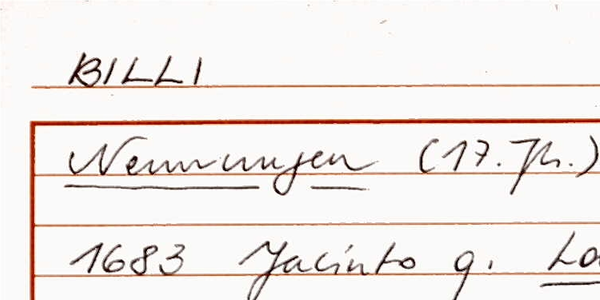 BILLI
Nennungen (17. Jh.)
1683 Jacinto q.